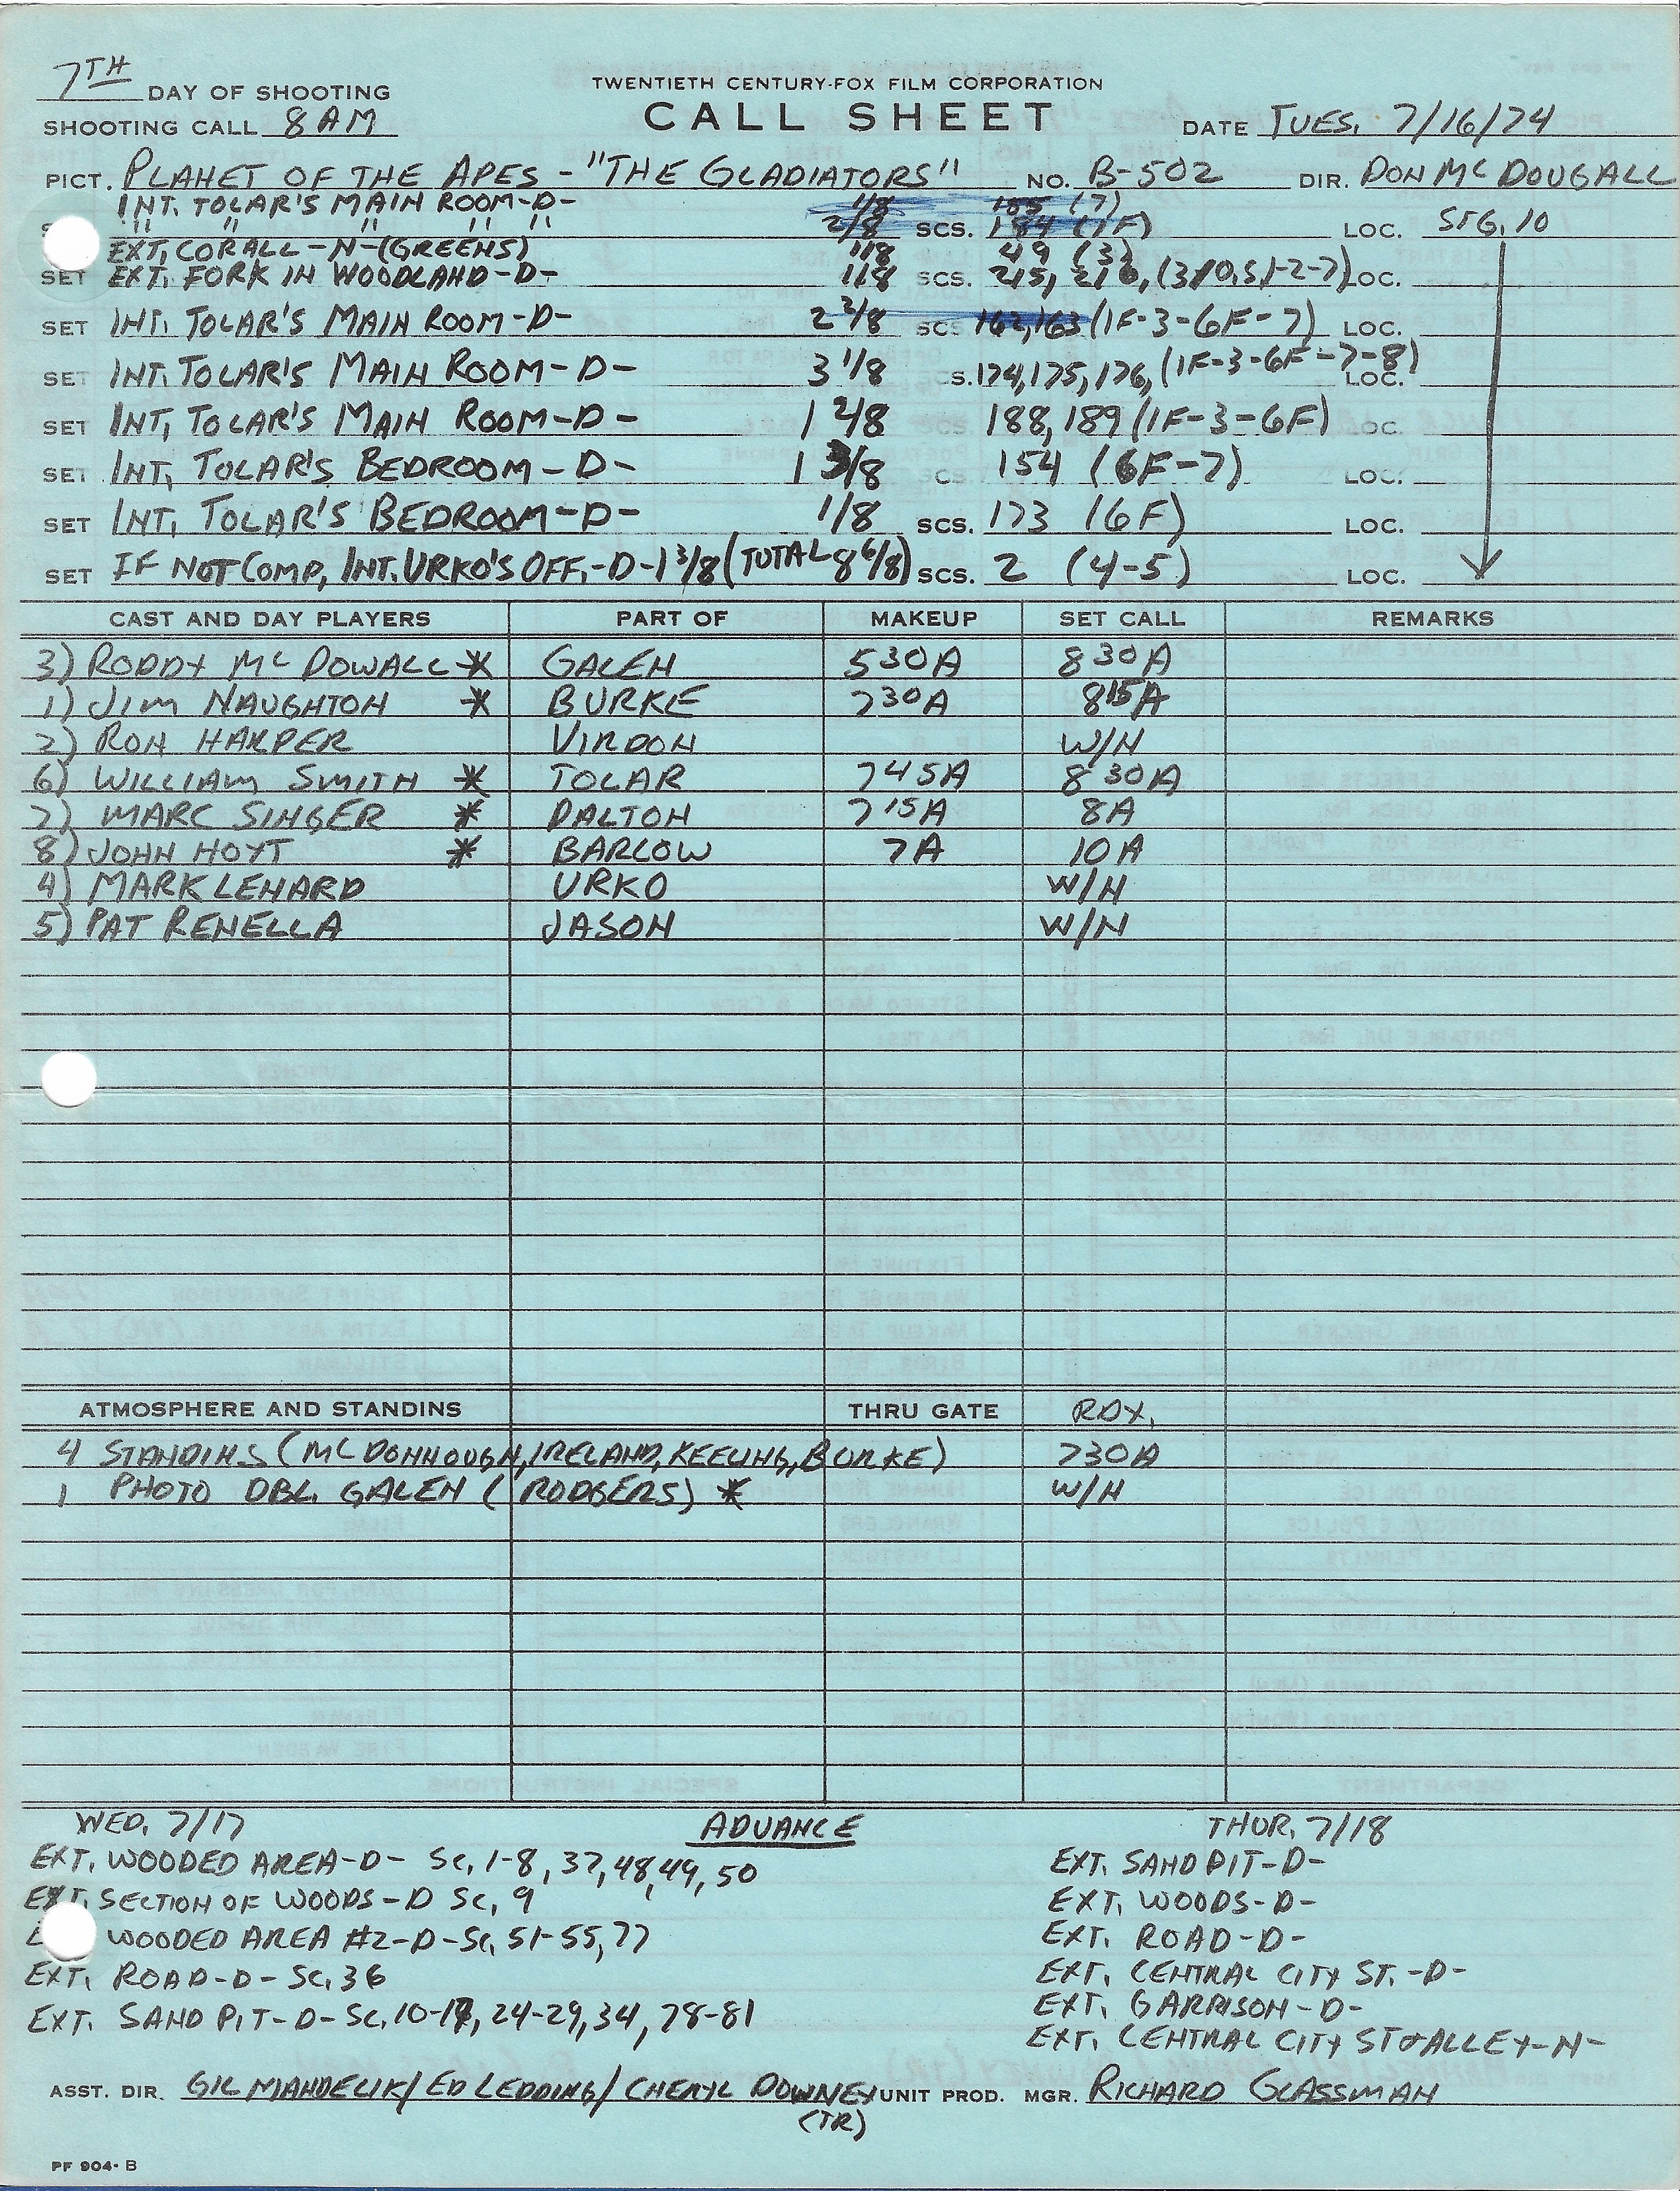 7TH DAY OF SHOOTING
TWENTIETH CENTURY-FOX FILM CORPORATION
SHOOTING CALL 8 AM CALL SHEET DATE TUES. 7/16/74
PICT. PLANET OF THE APES - "THE GLADIATORS" NO. B-502 DIR. DON McDOUGALL
INT. TOLAR'S MAIN ROOM-D- 1/8 155 (7)
" " " " " 2/8 SCS. 184 (1F) LOC. STG. 10
EXT. CORALL-N-(GREENS) 1/8 49 (3)
SET EXT. FORK IN WOODLAND-D- 1/8 SCS. 215, 216, LOC.
SET INT. TOLAR'S MAIN ROOM-D- 2 2/8 SCS 162,163 (1F-3-6F-7) LOC.
SET INT. TOLAR'S MAIN ROOM-D- 3 1/8 S. 174,175,176, (1F-3-6F-7-8) LOC.
SET INT, TOLAR'S MAIN ROOM-D- 1 2/8 CS. 188,189 (1F-3-6F) LOC.
SET INT, TOLAR'S BEDROOM-D- 1 3/8 CS. 154 (6F-7) LOC.
SET INT, TOLAR'S BEDROOM-D- 1/8 SCS. 173 (6F) LOC.
SET IF NOT COMP, INT. URKO'S OFF.-D-1 3/8 (TOTAL 8 6/8) SCS. 2 (4-5) LOC.
CAST AND DAY PLAYERS PART OF MAKEUP SET CALL REMARKS
3) RODDY McDOWALL * GALEN 530A 830A
1) JIM NAUGHTON * BURKE 730A 815A
2) RON HARPER VIRDON W/N
6) WILLIAM SMITH * TOLAR 745A 830A
7) MARC SINGER * DALTON 715A 8A
8) JOHN HOYT * BARLOW 7A 10A
4) MARK LENARD URKO W/N
5) PAT RENELLA JASON W/N
ATMOSPHERE AND STANDINS THRU GATE RDY.
4 STANDINS (McDONNOUGH, IRELAND, KEELING, BURKE) 730A
1 PHOTO DBL. GALEN (RODGERS) * W/N
WED, 7/17 ADVANCE THUR, 7/18
EXT. WOODED AREA-D- Sc, 1-8, 37, 48, 49, 50 EXT. SAND PIT-D-
EXT. SECTION OF WOODS-D Sc, 9 EXT. WOODS-D-
WOODED AREA #2-D-Sc, 51-55, 77 EXT. ROAD-D-
EXT. ROAD-D-Sc. 36 EXT. CENTRAL CITY ST.-D-
EXT. GARRISON-D-
EXT. SAND PIT-D-Sc. 24-29, 34, 78-81 EXT. CENTRAL CITY ST & ALLEY-N-
ASST. DIR. GIL MANDELIK/ED LEDDING/CHERYL DOWNEY UNIT PROD. MGR. RICHARD GLASSMAN
(TR)
PF 904-B